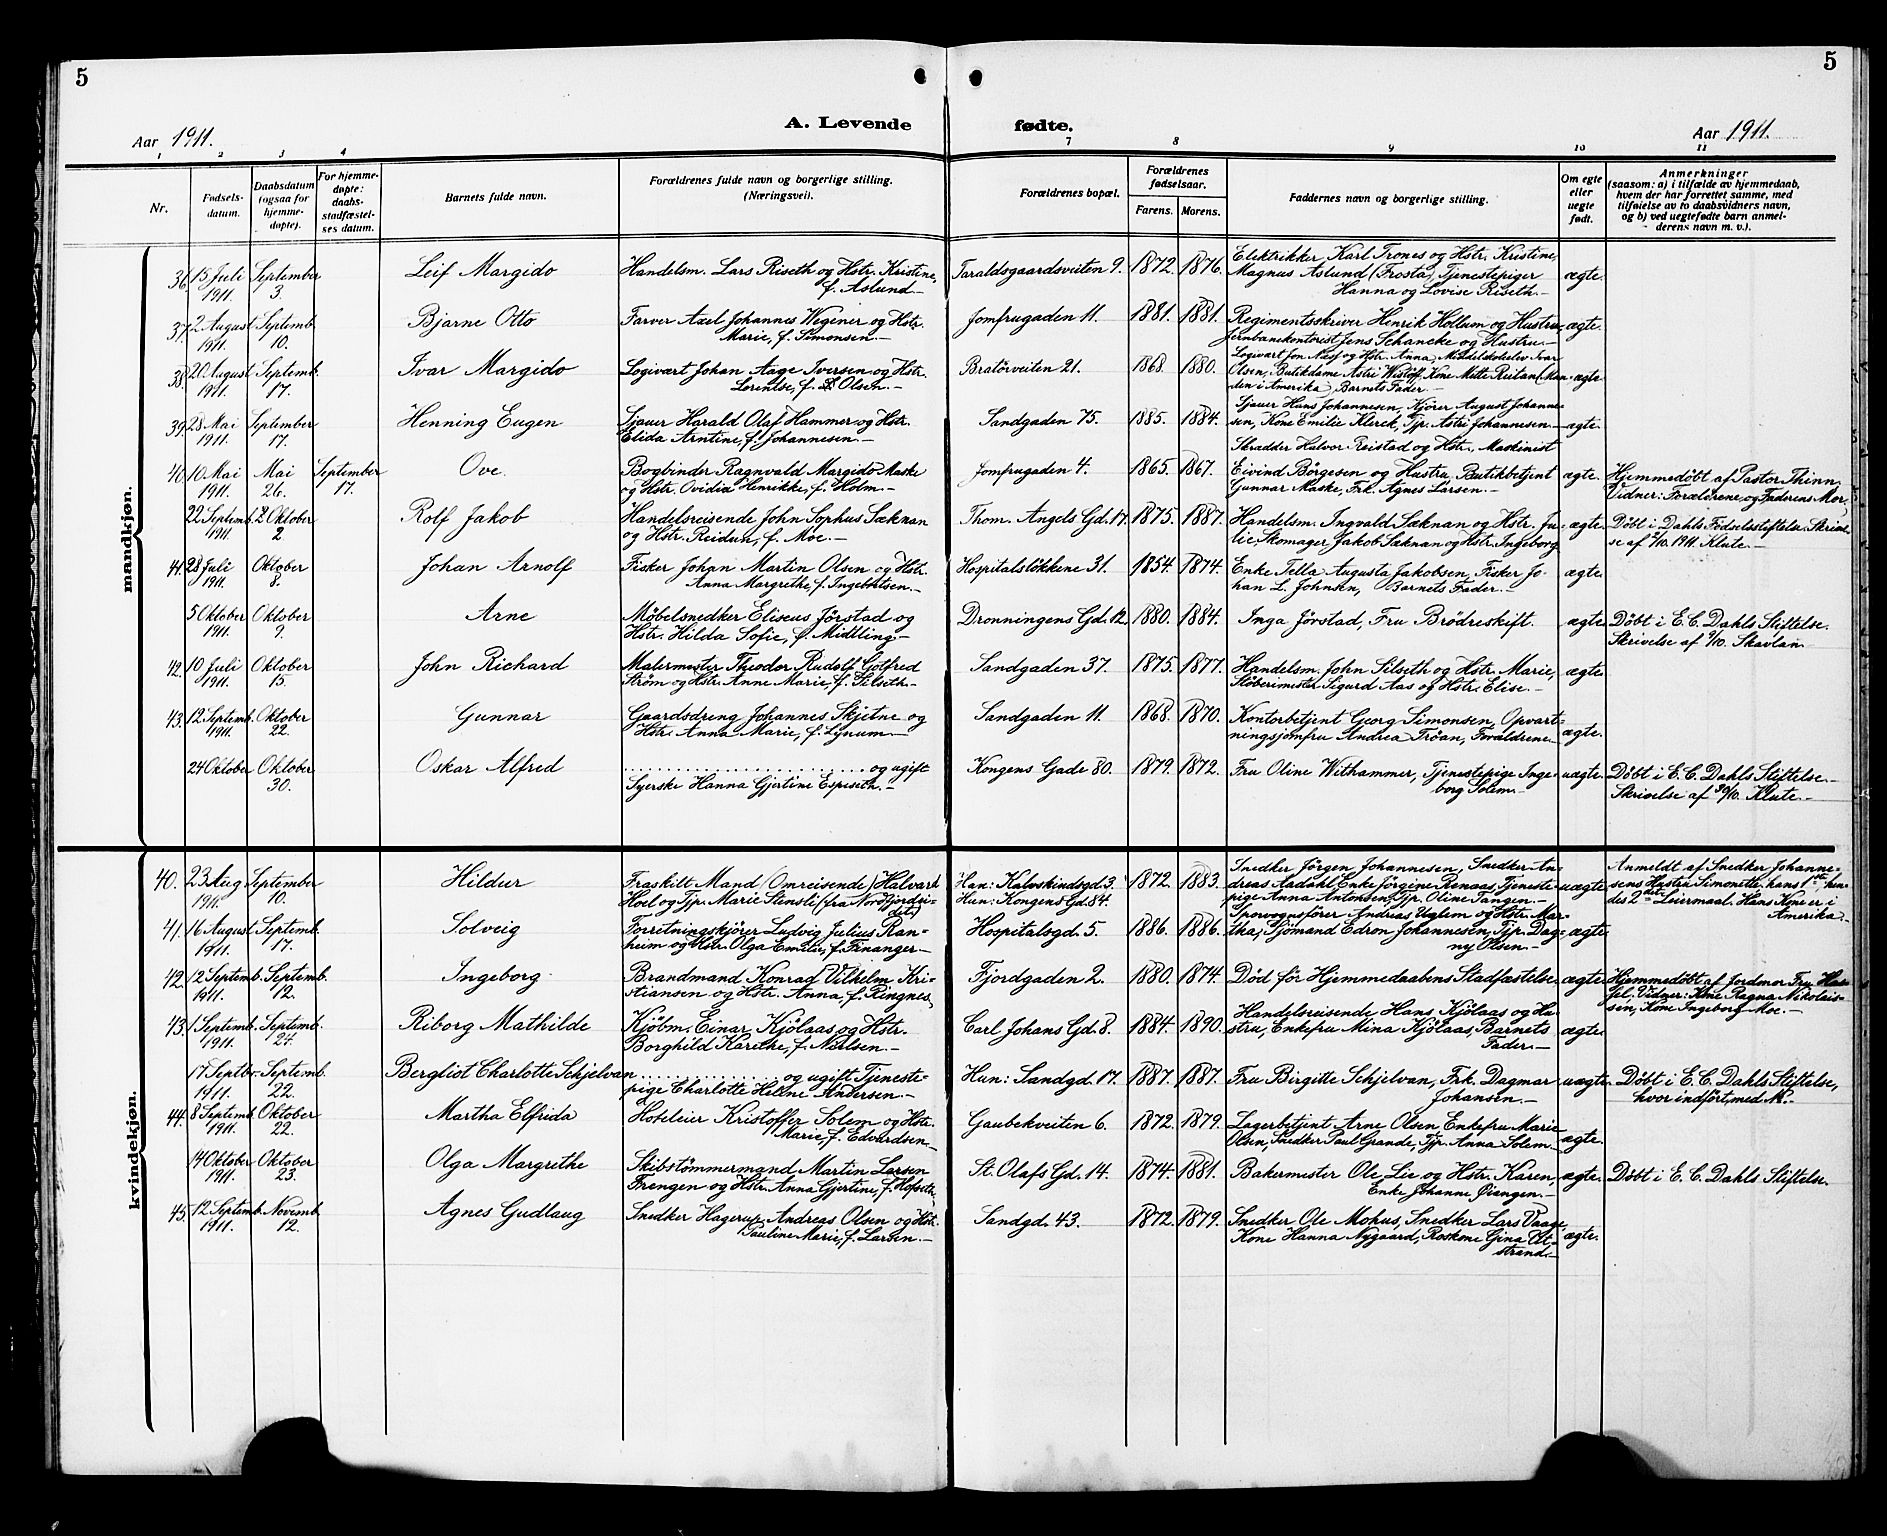 5
5
A. Levende fødte.
Aar 1911.
Aar 1911.
1 2 3 4 7 8 9 10 11
Nr.
Fødsels-
datum.
Daabsdatum
(ogsaa for
hjemme-
døpte).
For hjemme-
døpte:
daabs-
stadfæstel-
ses datum.
Barnets fulde navn.
Forældrenes fulde navn og borgerlige stilling.
(Næringsvei).
Forældrenes bopæl.
Forældrenes
fødselsaar.
Farens. Morens.
Faddernes navn og borgerlige stilling.
Om egte
eller
uegte
født.
Anmerkninger
(saasom: a) i tilfælde av hjemmedaab,
hvem der har forrettet samme, med
tilføielse av to daabsvidners navn,
og b) ved uegtefødte barn anmel-
derens navn m. v.).
mandkjøn.
36. 15 Juli 1911. September 3. Leif Margido
Handelsm. Lars Riseth og Hstr. Kristine,
f. Aslund.
Taraldsgaardsveiten 9. 1872. 1876.
Elektrikker Karl Trones og Hstr. Kristine,
Magnus Aslund (Frosta), Tjenestepiger
Hanna og Lovise Riseth. ægte.
37. 2 August 1911. Septemb. 10. Bjarne Otto
Farver Axel Johannes Wegener og Hstr.
Marie, f. Simonsen.
Jomfrugaden 11. 1881. 1881.
Regimentsskriver Henrik Hollum og Hustru,
Jernbanekontorist Jens Schancke og Hustru. ægte.
38. 20 August 1911. Septemb. 17. Ivar Margido
Logivært Johan Aage Iversen og Hstr.
Lorentse, f. Olsen.
Bratørveiten 21. 1868. 1880.
Logivært Jon Næss og Hstr. Anna, Middelskoleelev Ivar
Olsen, Butikdame Astri Wistøff, Kone Mette Reitan (Man-
den i Amerika), Barnets Fader. ægte
39. 28 Mai 1911. September 17. Henning Eugen
Sjauer Harald Olaf Hammer og Hstr.
Elida Arntine, f. Johannesen.
Sandgaden 75. 1885. 1884.
Sjauer Hans Johannesen, Kjører August Johanne-
sen, Kone Emilie Klerck, Tjp. Astri Johannesen. ægte.
40. 10 Mai 1911. Mai 26. September 17. Ove.
Bogbinder Ragnvald Margido Maske
og Hstr. Ovidia Henrikke, f. Holm.
Jomfrugaden 4. 1865. 1867.
Skrædder Halvor Reistad og Hstr., Maskinist
Eivind Børgesen og Hustru, Butikbetjent
Gunnar Maske, Frk. Agnes Larsen. ægte.
Hjemmedøbt af Pastor Thinn.
Vidner: Forældrene og Faderens Mor.
22 Septemb. 1911. 2 Oktober 2. Rolf Jakob
Handelsreisende John Sophus Sæknan
og Hstr. Reidun, f. Moe.
Thom. Angels Gd. 17. 1875. 1887.
Handelsm. Ingvald Sæknan og Hstr. Ju-
lie, Skomager Jakob Sæknan og Hstr. Ingeborg. ægte.
Døbt i Dahls Fødselsstiftelse. Skrivel-
se af 2/10. 1911. Klute.
41. 28 Juli 1911. Oktober 8. Johan Arnolf
Fisker Johan Martin Olsen og Hstr.
Anna Margrethe, f. Ingebrigtsen.
Hospitalsløkkene 31. 1854. 1874.
Enke Tella Augusta Jakobsen, Fisker Jo-
han L. Johnsen, Barnets Fader. ægte.
5 Oktober 1911. Oktober 9. Arne
Møbelsnedker Eliseus Jørstad og
Hstr. Hilda Sofie, f. Midtling.
Dronningens Gd. 12. 1880. 1884.
Inga Jørstad, Fru Brødreskift. ægte.
Døbt i E. C. Dahls Stiftelse.
Skrivelse af 9/10. Skavlan.
42. 10 Juli 1911. Oktober 15. John Richard
Malermester Theodor Rudolf Gotfred
Strøm og Hstr. Anne Marie, f. Silseth.
Sandgaden 37. 1875. 1877.
Handelsm. John Silseth og Hstr. Marie,
Støberimester Sigurd Aas og Hstr. Elise. ægte.
43. 12 Septemb. 1911. Oktober 22. Gunnar
Gaardsdreng Johannes Skjetne og
Hstr. Anna Marie, f. Lynum.
Sandgaden 11. 1868. 1870.
Kontorbetjent Georg Simonsen, Opvart-
ningsjomfru Andrea Trøan, Forældrene. ægte.
24 Oktober Oktober 30. Oskar Alfred
. . . . . . . . . . og ugift
Syerske Hanna Gjertine Espeseth.
Kongens Gade 80. 1879. 1872.
Fru Oline Withammer, Tjenestepige Inge-
borg Solem. uægte.
Døbt i E. C. Dahls Stiftelse.
Skrivelse af 30/10. Klute.
kvindekjøn.
40. 23 Aug 1911. September 10. Hildur
Fraskilt Mand (Omreisende) Halvard
Hoel og Tjp. Marie Stensli (fra Nordfjordei-
det)
Han: Kalvskindsgd. 3.
Hun: Kongens Gd. 84. 1872. 1883.
Snedker Jörgen Johannesen, Snedker An-
dreas Aadahl, Enke Jörgine Renaas, Tjeneste-
pige Anna Antonsen, Tjp. Oline Tangen. uægte.
Anmeldt af Snedker Johanne-
sens Hustru Simonette, hans 1ste, hen-
des 2det Leiermaal. Hans Kone er i
Amerika.
41. 16 August 1911. Septemb. 17. Solveig
Forretningskjører Ludvig Julius Ran-
heim og Hstr. Olga Emilie, f. Finanger.
Hospitalsgd. 5. 1886. 1886.
Sporvognsfører Andreas Uglem og Hstr. Mar-
tha, Sjømand Edron Johannesen, Tjp. Dag-
ny Olsen. ægte
42. 12 Septemb. 1911. Septemb. 12. Ingeborg.
Brandmand Konrad Vilhelm Kri-
stiansen og Hstr. Anna, f. Ringnes.
Fjordgaden 2. 1880. 1874.
Død før Hjemmedaabens Stadfæstelse. ægte.
Hjemmedøbt af Jordmor Fru
Vidner: Kone Ragna Nikolais-
sen, Kone Ingeborg Moe.
43. 1 Septemb. 1911. Septemb. 24. Riborg Mathilde
Kjøbm. Einar Kjölaas og Hstr.
Borghild Karethe, f. Nielsen.
Carl Johans Gd. 8. 1884. 1890.
Handelsreisende Hans Kjölaas og Hu-
stru, Enkefru Mina Kjölaas, Barnets
Fader. ægte.
17 Septbr. 1911. Septemb. 22. Bergliot Charlotte Schjelvan
. . . . . . . . og ugift Tjeneste-
pige Charlotte Helene Andersen.
Hun: Sandgd. 17. 1887. 1887.
Fru Birgitte Schjelvan, Frk. Dagmar
Johansen. uægte.
Døbt i E. C. Dahls Stiftelse,
hvor indført med No.
44. 8 Septemb. 1911. Oktober 22. Martha Elfrida
Hoteleier Kristoffer Solem og Hstr.
Marie, f. Edvardsen.
Gaubekveiten 6. 1872. 1879.
Lagerbetjent Arne Olsen, Enkefru Marie
Olsen, Snedker Paul Grande, Tjp. Anna Solem. ægte.
14 Oktober 1911. Oktober 23. Olga Margrethe
Skibstømmermand Martin Larsen
Trengen og Hstr. Anna Gjertine, f. Hofseth.
St. Olafs Gd. 14. 1874. 1881.
Bakermester Ole Lie og Hstr. Karen,
Enke Johanne Øiangen. ægte.
Døbt i E. C. Dahls Stiftelse.
45. 12 Septemb. 1911. Novemb. 12. Agnes Gudlaug
Snedker Hagerup Andreas Olsen og Hstr.
Pauline Marie, f. Larsen.
Sandgd. 43. 1872. 1879.
Snedker Ole Mohus, Snedker Lars Vaage,
Kone Hanna Nygaard, Roskone Gina Øt-
strand. ægte.